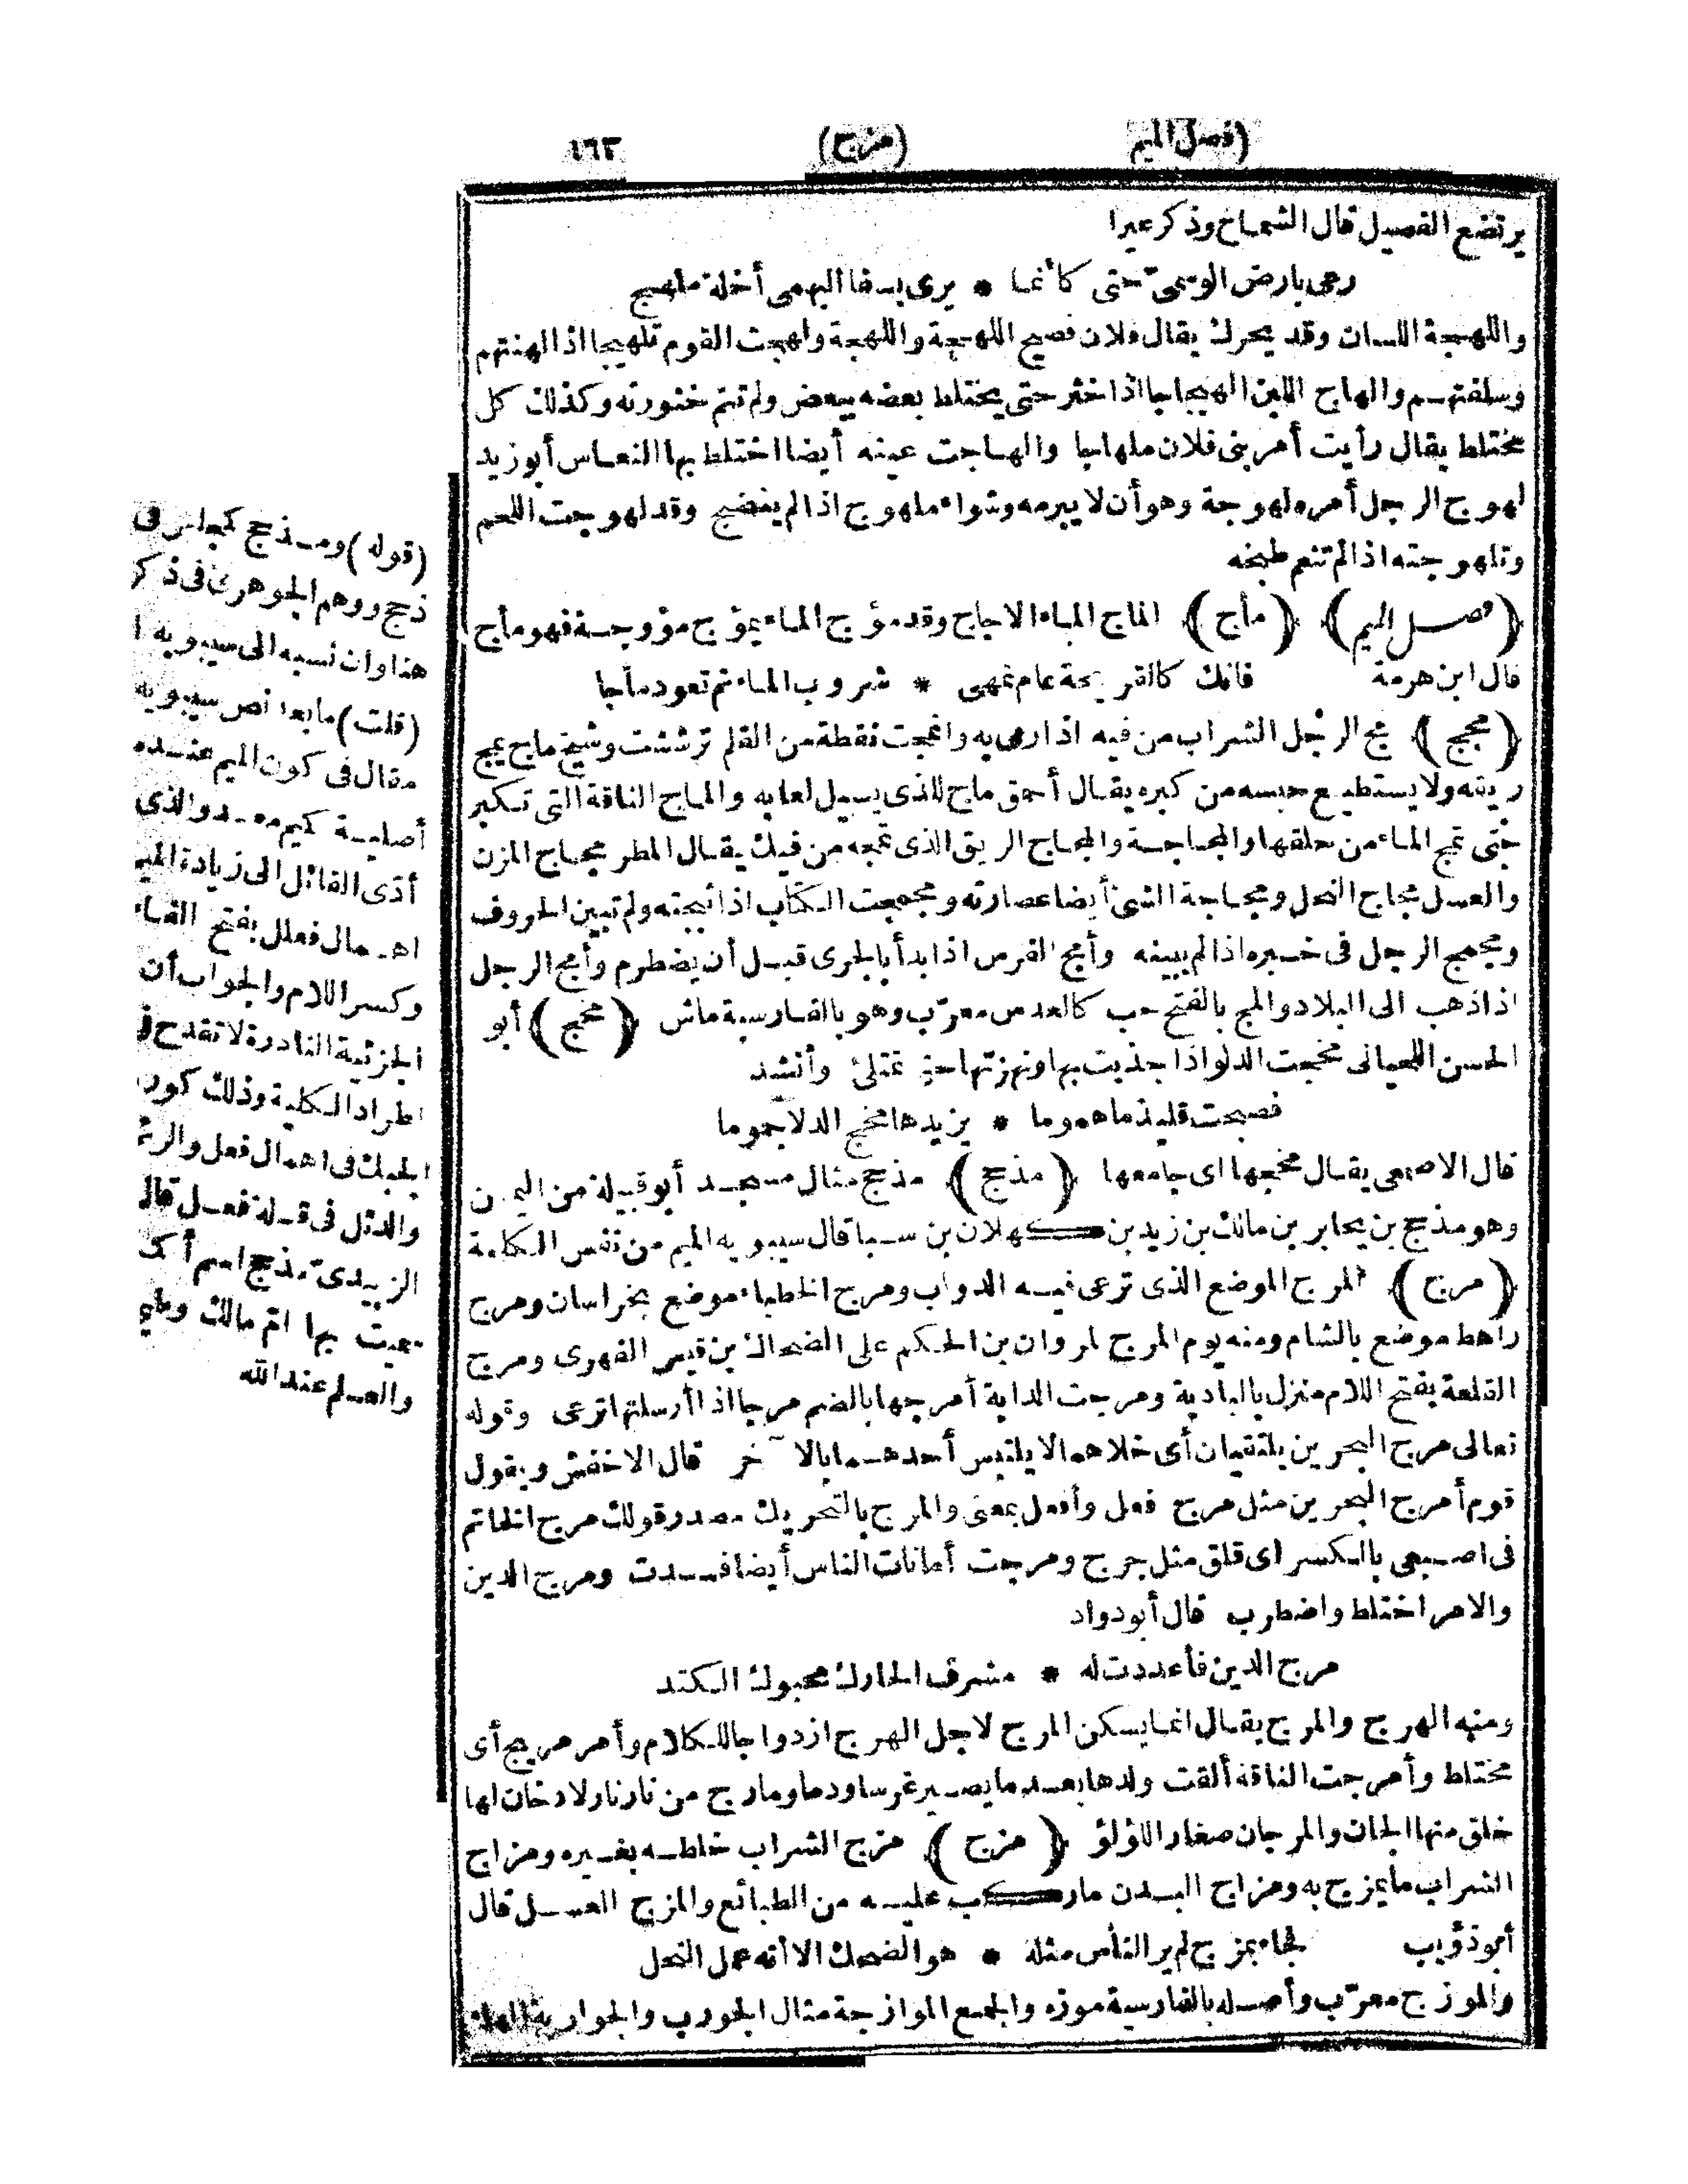 (فصل الميم (مزج) ١٦٣
يرتضع الفصيل قال الشماخ وذكر عيرا
رعى بارض الوسمىّ حتى كأنما * يرى بسفا البهمى أخلة ملهج
واللهجة اللسان وقد يحرك يقال فلان فصيح اللهجة واللهجة ولهجت القوم تلهيجا اذا لهنتهم
وسلفتهم والهاج اللبن الهيجاجا اذا خثر حتى يختلط بعضه ببعض ولم تتم خثورته وكذلك كل
مختلط يقال رأيت أمر بنى فلان ملهاجا والهاجت عينه أيضا اختلط بها النعاس أبو زيد
لهوج الرجل أمره لهوجة وهو أن لا يبرمه وشواء ملهوج اذا لم ينضج وقد لهوجت اللحم
وتلهوجته اذا لم تنعم طبخه
﴿فصل الميم﴾ ﴿مأج﴾ المأج الماء الاجاج وقد مؤج الماء يمؤج مؤوجة فهو مأج
قال ابن هرمة فانك كالقريحة عام تمهى * شروب الماء ثم تعود مأجا
﴿مجج﴾ مج الرجل الشراب من فيه اذا رمى به وانمجت نقطة من القلم ترششت وشيخ ماج يمج
ريقه ولا يستطيع حبسه من كبره يقال أحمق ماج للذى يسيل لعابه والماج الناقة التى تكبر
حتى تمج الماء من حلقها والمجاجة والمجاج الريق الذى تمجه من فيك يقال المطر مجاج المزن
والعسل مجاج النحل ومجاجة الشئ أيضا عصارته ومجمجت الكتاب اذا ثبجته ولم تبين الحروف
ومجمج الرجل فى خبره اذا لم يبينه وأمج الفرس اذا بدأ بالجرى قبل أن يضطرم وأمج الرجل
اذا ذهب الى البلاد والمج بالفتح حب كالعدس معرّب وهو بالفارسية ماش ﴿مخج﴾ أبو
الحسن اللحيانى مخجت الدلو اذا جذبت بها ونهزتها حتى تمتلئ وأنشد
فصبحت قليذما هموما * يزيدها مخج الدلا جموما
قال الاصمعى يقال مخجها اى جامعها ﴿مذحج﴾ مذحج مثال مسجد أبو قبيلة من اليمن
وهو مذحج بن يحابر بن مالك بن زيد بن كهلان بن سبا قال سيبويه الميم من نفس الكلمة
﴿مرج﴾ المرج الموضع الذى ترعى فيه الدواب ومرج الخطباء موضع بخراسان ومرج
راهط موضع بالشام ومنه يوم المرج لمروان بن الحكم على الضحاك بن قيس الفهرى ومرج
القلعة بفتح اللام منزل بالبادية ومرجت الدابة أمرجها بالضم مرجا اذا أرسلتها ترعى وقوله
تعالى مرج البحرين يلتقيان أى خلاهما لا يلتبس أحدهما بالآخر قال الاخفش ويقول
قوم أمرج البحرين مثل مرج فعل وأفعل بمعنى والمرج بالتحريك مصدر قولك مرج الخاتم
فى اصبعى بالكسر اى قلق مثل جرج ومرجت أمانات الناس أيضا فسدت ومرج الدين
والامر اختلط واضطرب قال أبو دواد
مرج الدين فأعددت له * مشرف الحارك محبوك الكتد
ومنه الهرج والمرج يقال انما يسكن المرج لاجل الهرج ازدواجا للكلام وأمر مريج أى
مختلط وأمرجت الناقة ألقت ولدها بعد ما يصير غرسا ودما ومارج من نار نار لا دخان لها
خلق منها الجان والمرجان صغار اللؤلؤ ﴿مزج﴾ مزج الشراب خلطه بغيره ومزاج
الشراب ما يمزج به ومزاج البدن ما ركب عليه من الطبائع والمزج العسل قال
أبو ذؤيب فجاء بمزج لم ير الناس مثله * هو الضحك الا أنه عمل النحل
والموزج معرّب وأصله بالفارسية موزه والجمع الموازجة مثال الجورب والجواربة الهاء
(قوله) ومذحج كمجلس فى
ذحج ووهم الجوهرى فى ذكر
هنا وان نسبه الى سيبويه
(قلت) ما بعد نص سيبويه
مقال فى كون الميم عنده
أصلية كميم معد والذى
أدّى القائل الى زيادة الميم
اهمال فعلل بفتح الفاء
وكسر اللام والجواب أن
الجزئية النادرة لا تقدح فى
اطراد الكلية وذلك كورود
الحبك فى اهمال فعل والرئم
والدئل فى قلة فعل قال
الزبيدىّ مذحج اسم أكمة
سميت بها امّ مالك وطيئ
والعلم عند الله